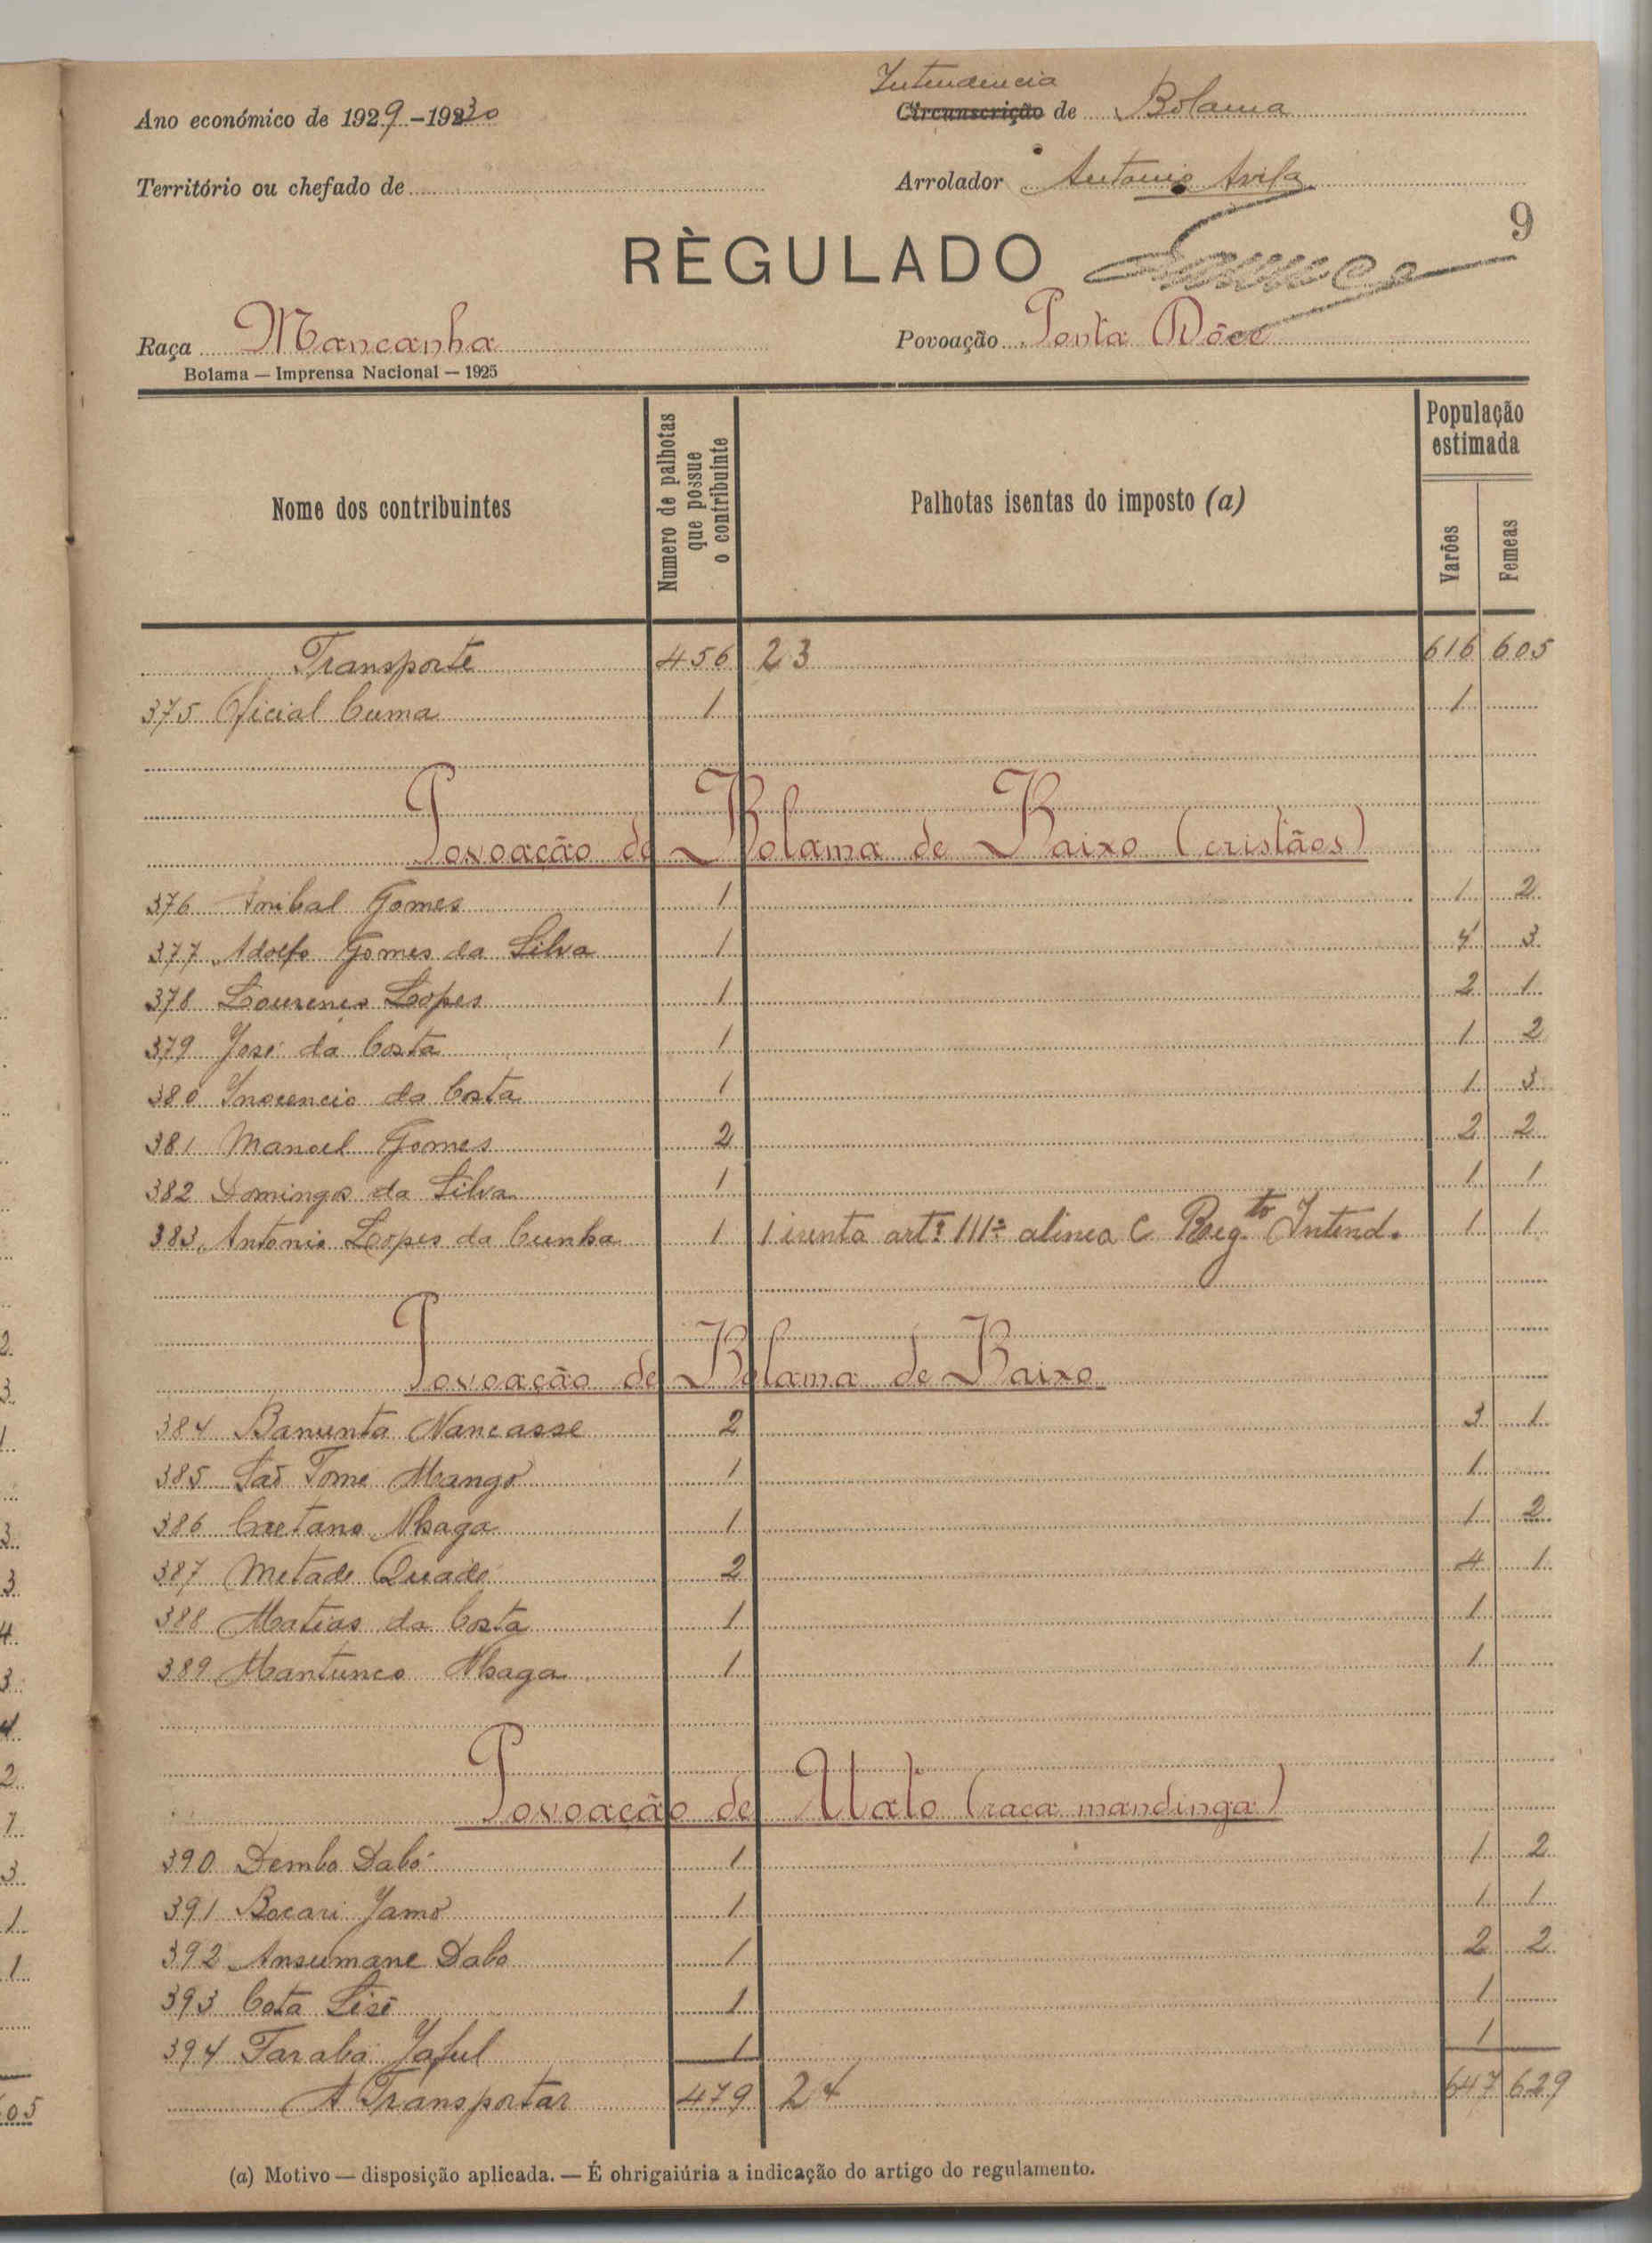 Intendencia
Ano económico de 1929-1930 Circunscrição de Bolama
Território ou chefado de Arrolador Antonio Avila
9
RÈGULADO
Raça Mancanha Povoação Ponta Dôce
Bolama — Imprensa Nacional — 1925
Nome dos contribuintes Numero de palhotas que possue o contribuinte Palhotas isentas do imposto (a) População estimada Varões Femeas
Transporte 456 23 616 605
375 Oficial Cuma 1 1
Povoação de Bolama de Baixo (cristãos)
376 Anibal Gomes 1 1 2
377 Adolfo Gomes da Silva 1 4 3
378 Lourenço Lopes 1 2 1
379 José da Costa 1 1 2
380 Inocencio da Costa 1 1 3
381 Manoel Gomes 2 2 2
382 Domingos da Silva 1 1 1
383 Antonio Lopes da Cunha 1 1 isenta artº 111º alinea C Regto Intend. 1 1
Povoação de Bolama de Baixo
384 Banunta Nancasse 2 3 1
385 São Tomé Mango 1 1
386 Caetano Nhaga 1 1 2
387 Metade Quade 2 4 1
388 Matias da Costa 1 1
389 Mantunco Nhaga 1 1
Povoação de Uato (raça mandinga)
390 Dembo Dabó 1 1 2
391 Bacari Jamó 1 1 1
392 Ansumane Dabo 1 2 2
393 Cota Sisé 1 1
394 Faraba Jaful 1 1
A Transportar 479 24 647 629
(a) Motivo — disposição aplicada. — É obrigaiúria a indicação do artigo do regulamento.